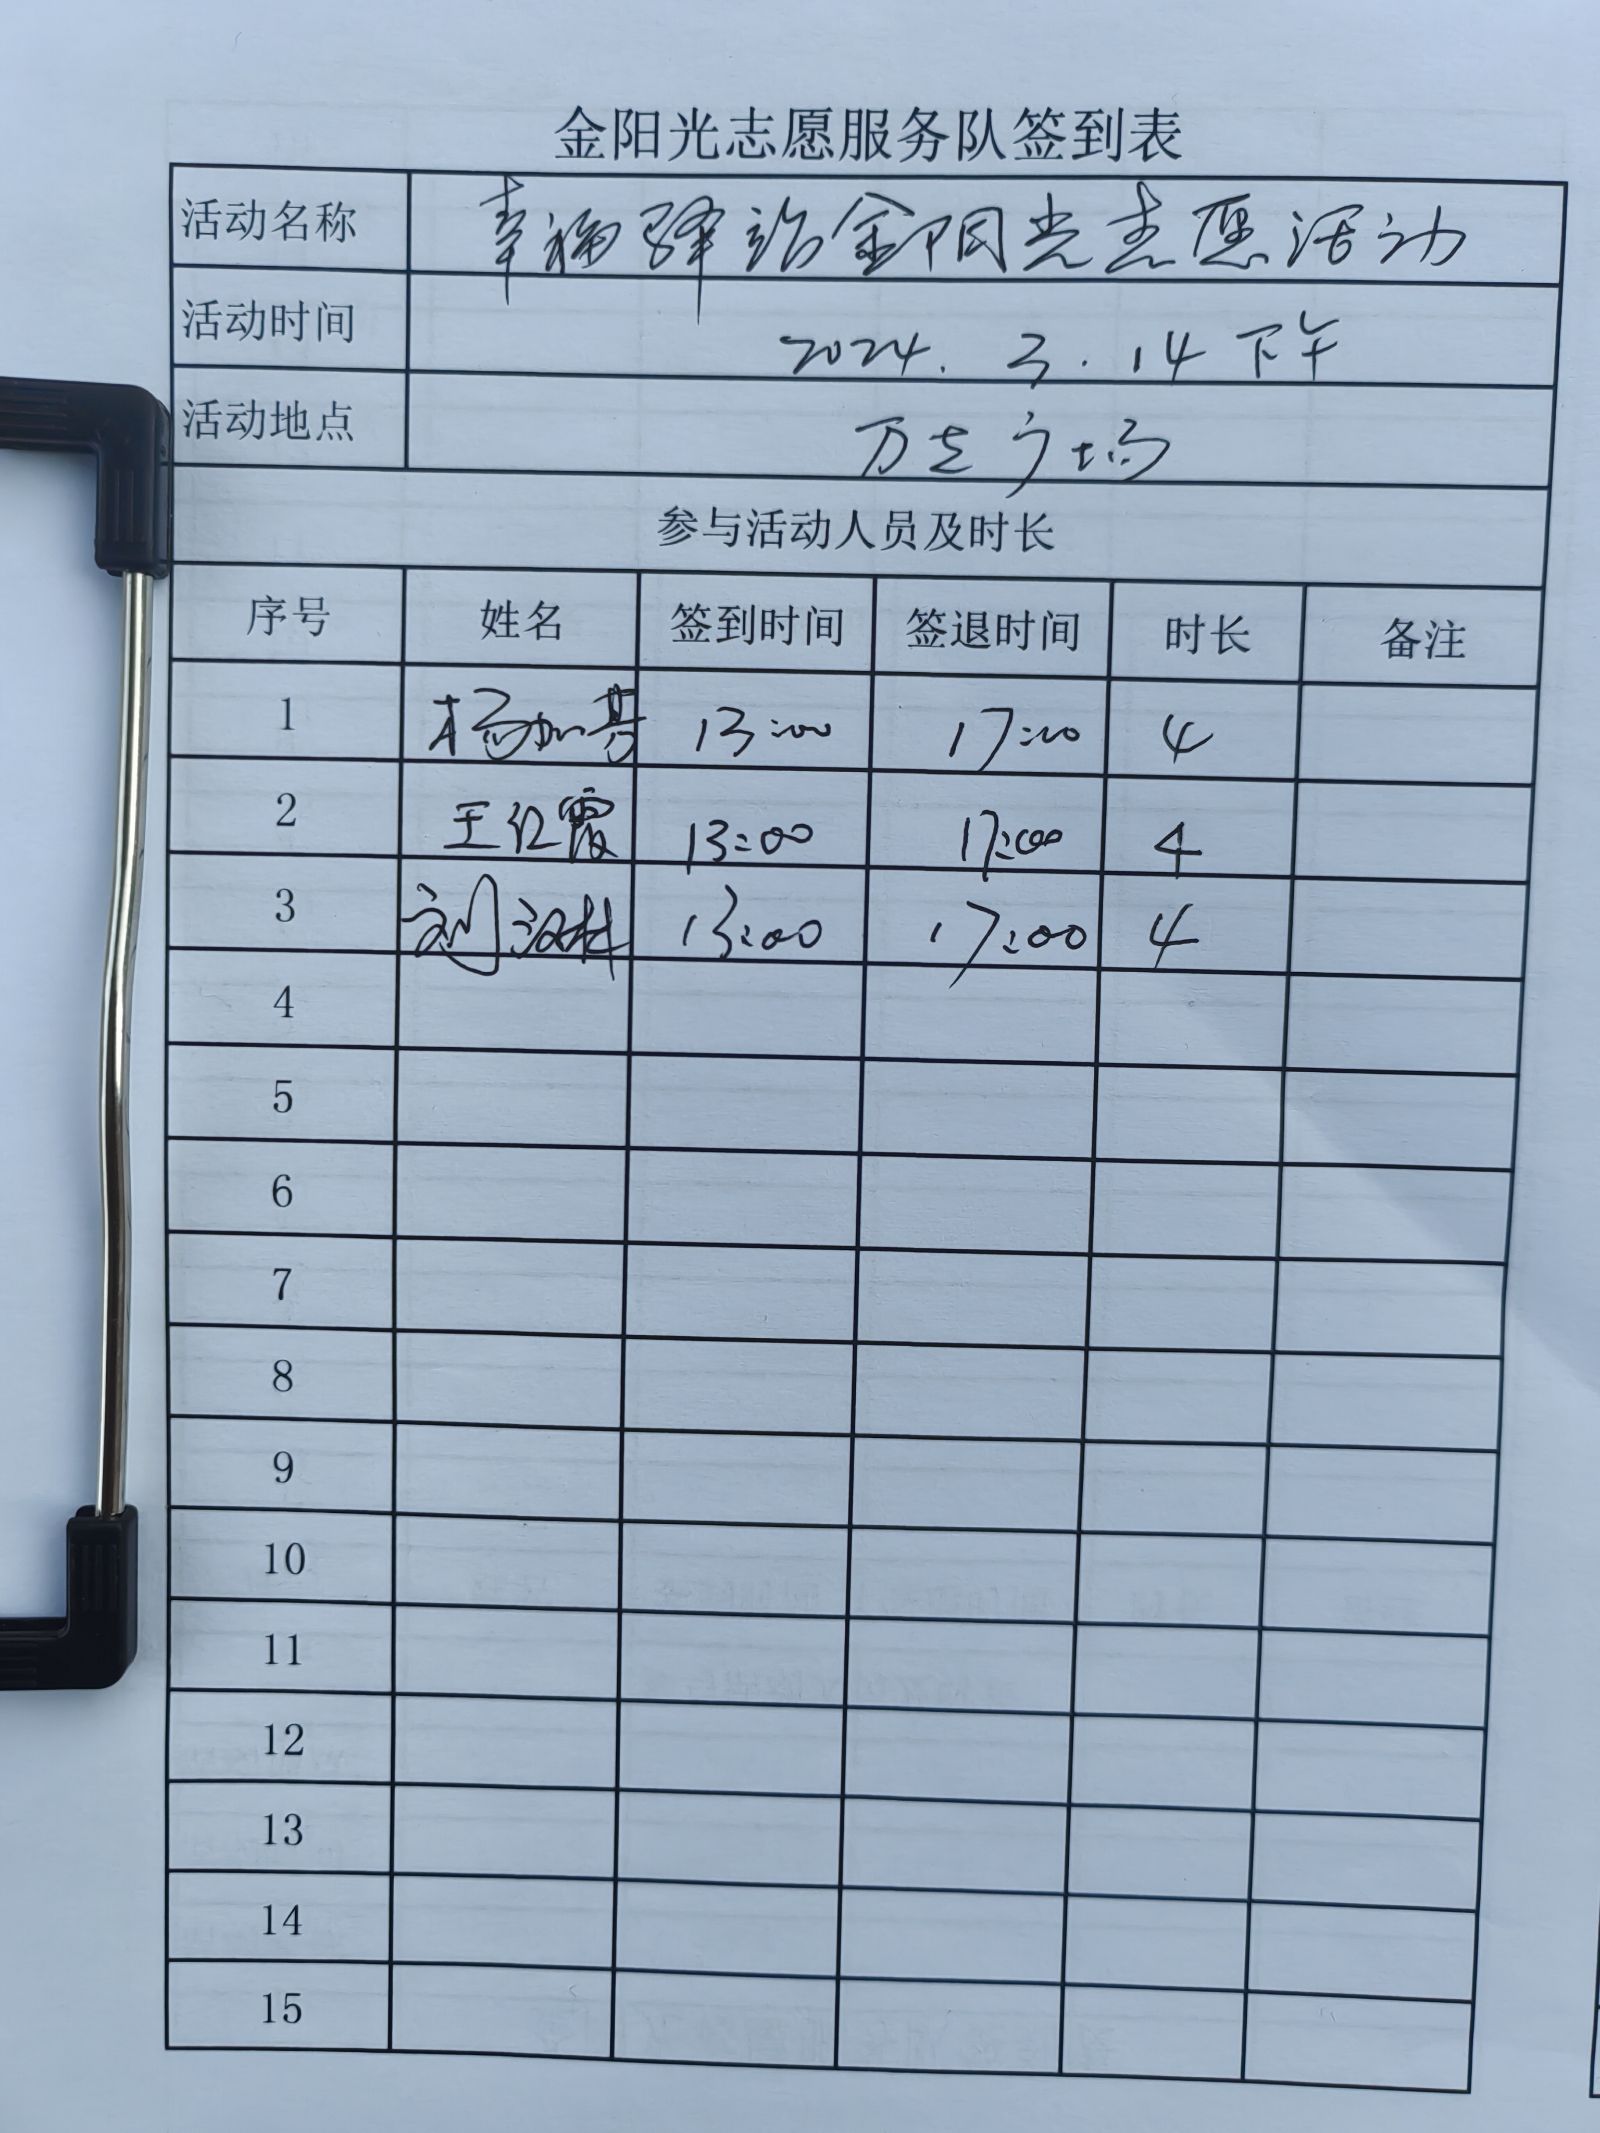 金阳光志愿服务队签到表
活动名称 幸福驿站金阳光志愿活动
活动时间 2024. 3. 14 下午
活动地点 万达广场
参与活动人员及时长
序号 姓名 签到时间 签退时间 时长 备注
1 杨加芬 13:00 17:00 4
2 王红霞 13:00 17:00 4
3 刘汉林 13:00 17:00 4
4
5
6
7
8
9
10
11
12
13
14
15